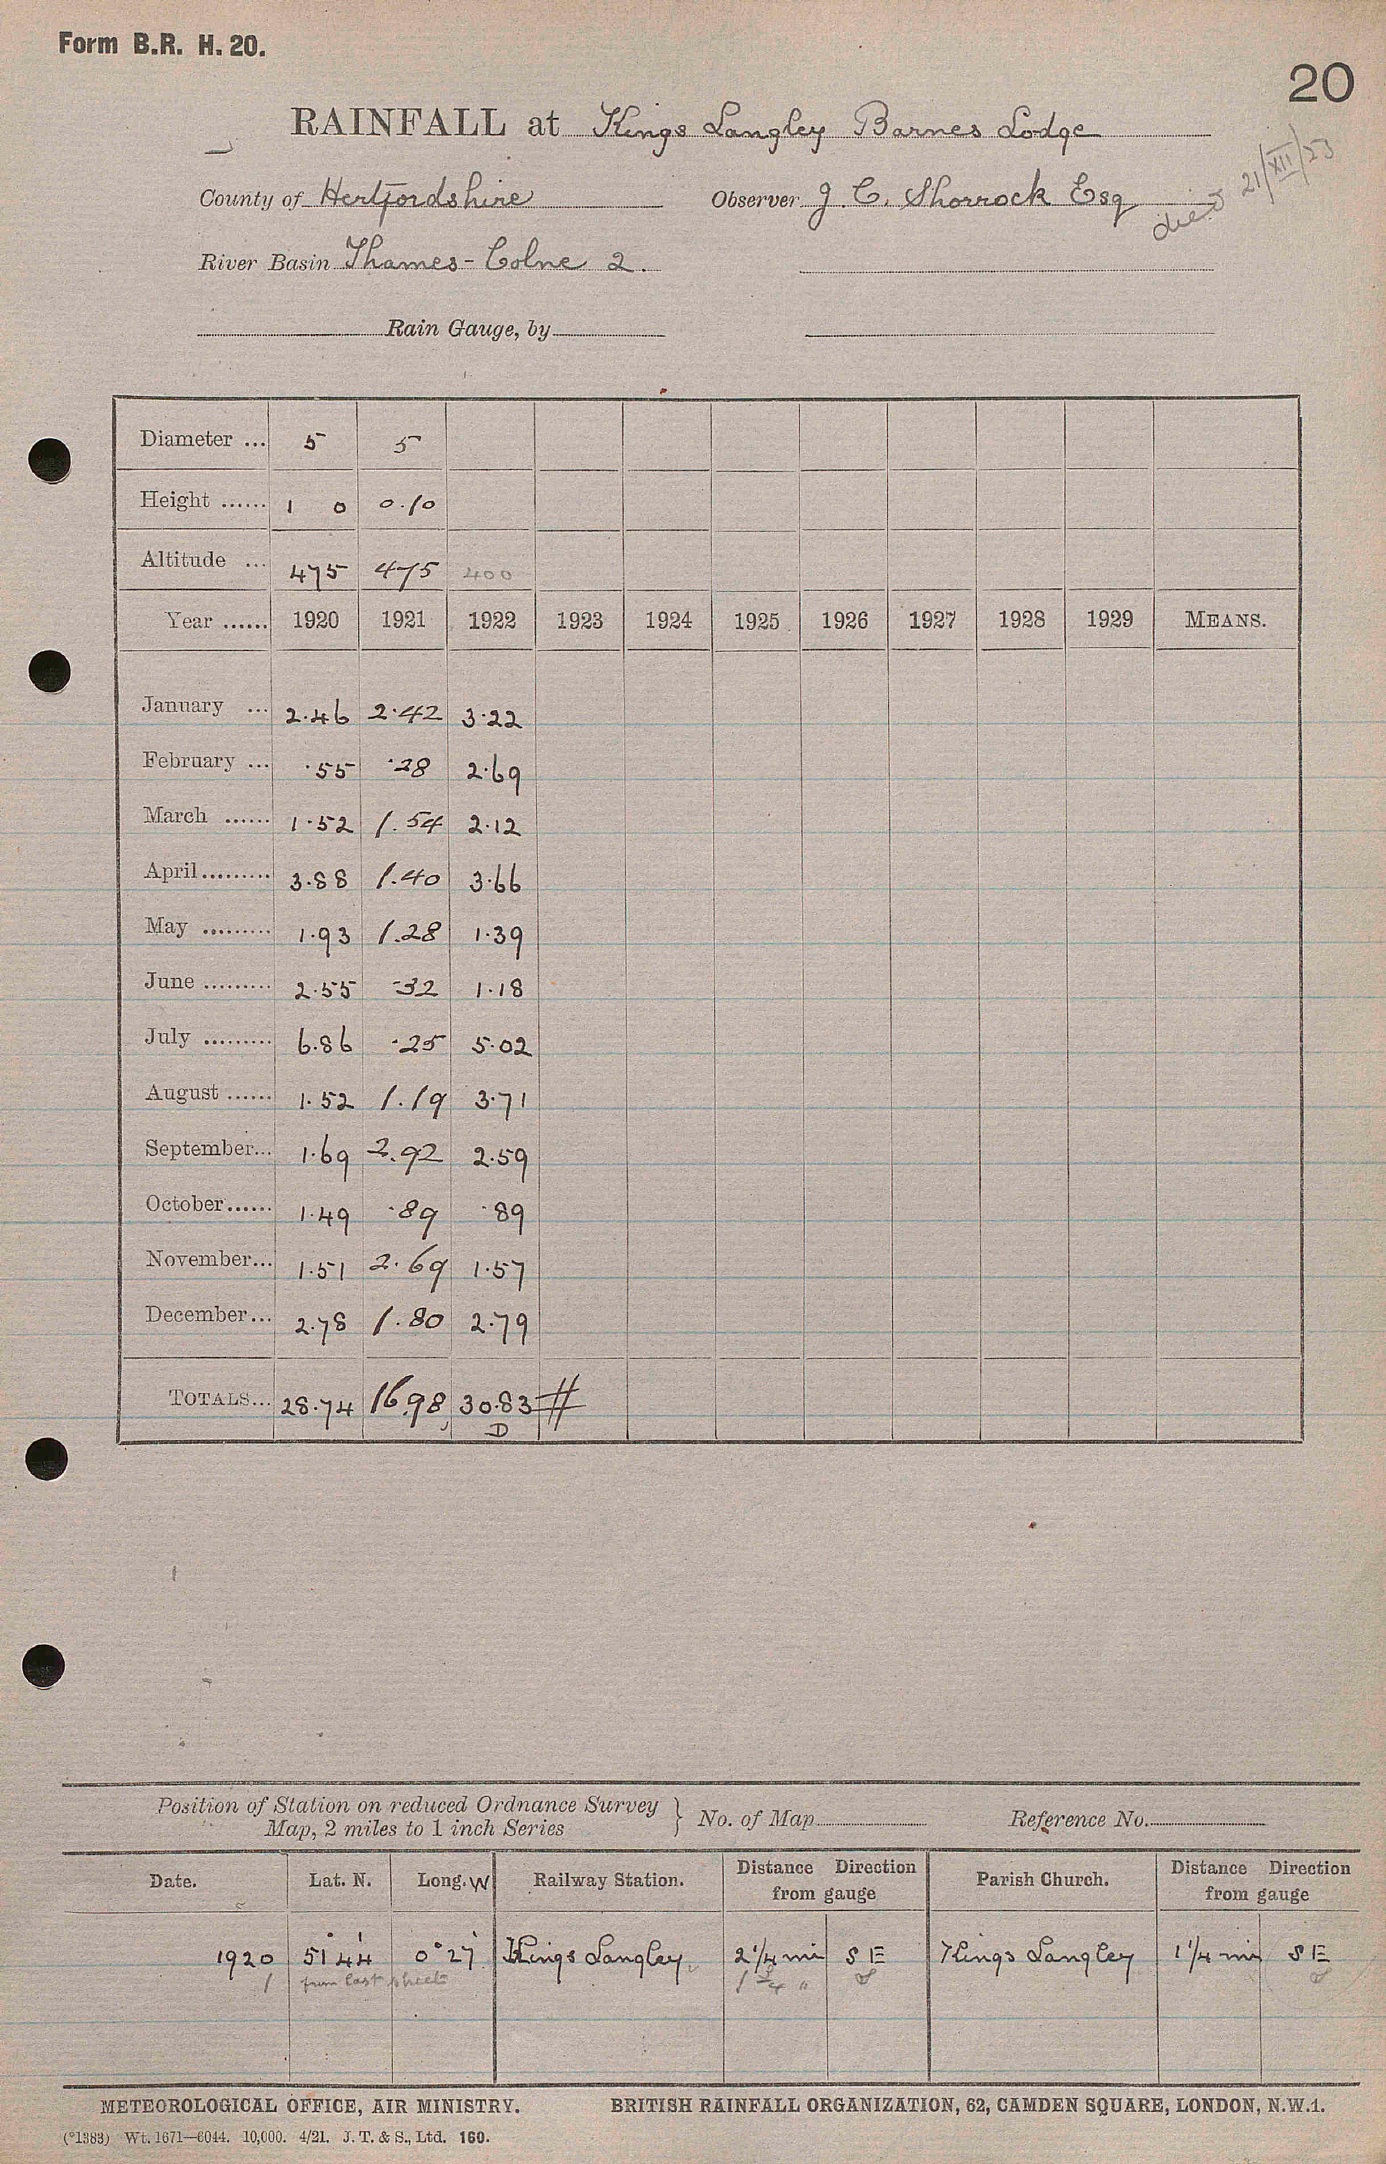 Form B.R. H. 20.
20
RAINFALL at Kings Langley Barnes Lodge
County of Hertfordshire Observer J. C. Shorrock Esq died 21/XII/23
River Basin Thames - Colne 2.
Rain Gauge, by
Diameter ... 5 5
Height ...... 1 0 0.10
Altitude ... 475 475 400
Year ...... 1920 1921 1922 1923 1924 1925 1926 1927 1928 1929 MEANS.
January ... 2.46 2.42 3.22
February ... .55 .28 2.69
March ...... 1.52 1.54 2.12
April ......... 3.88 1.40 3.66
May ......... 1.93 1.28 1.39
June ......... 2.55 .32 1.18
July ......... 6.86 .25 5.02
August ...... 1.52 1.19 3.71
September... 1.69 2.92 2.59
October...... 1.49 .89 .89
November... 1.51 2.69 1.57
December... 2.78 1.80 2.79
TOTALS... 28.74 16.98 30.83 #
D
Position of Station on reduced Ordnance Survey
Map, 2 miles to 1 inch Series } No. of Map Reference No.
Date. Lat. N. Long. W Railway Station. Distance Direction from gauge Parish Church. Distance Direction from gauge
1920 51° 44' 0° 27' Kings Langley 2 1/4 mi SE Kings Langley 1 1/4 mi SE
from last sheet 1 3/4 "
METEOROLOGICAL OFFICE, AIR MINISTRY. BRITISH RAINFALL ORGANIZATION, 62, CAMDEN SQUARE, LONDON, N.W.1.
(*1383) Wt. 1671—6044. 10,000. 4/21. J. T. & S., Ltd. 160.